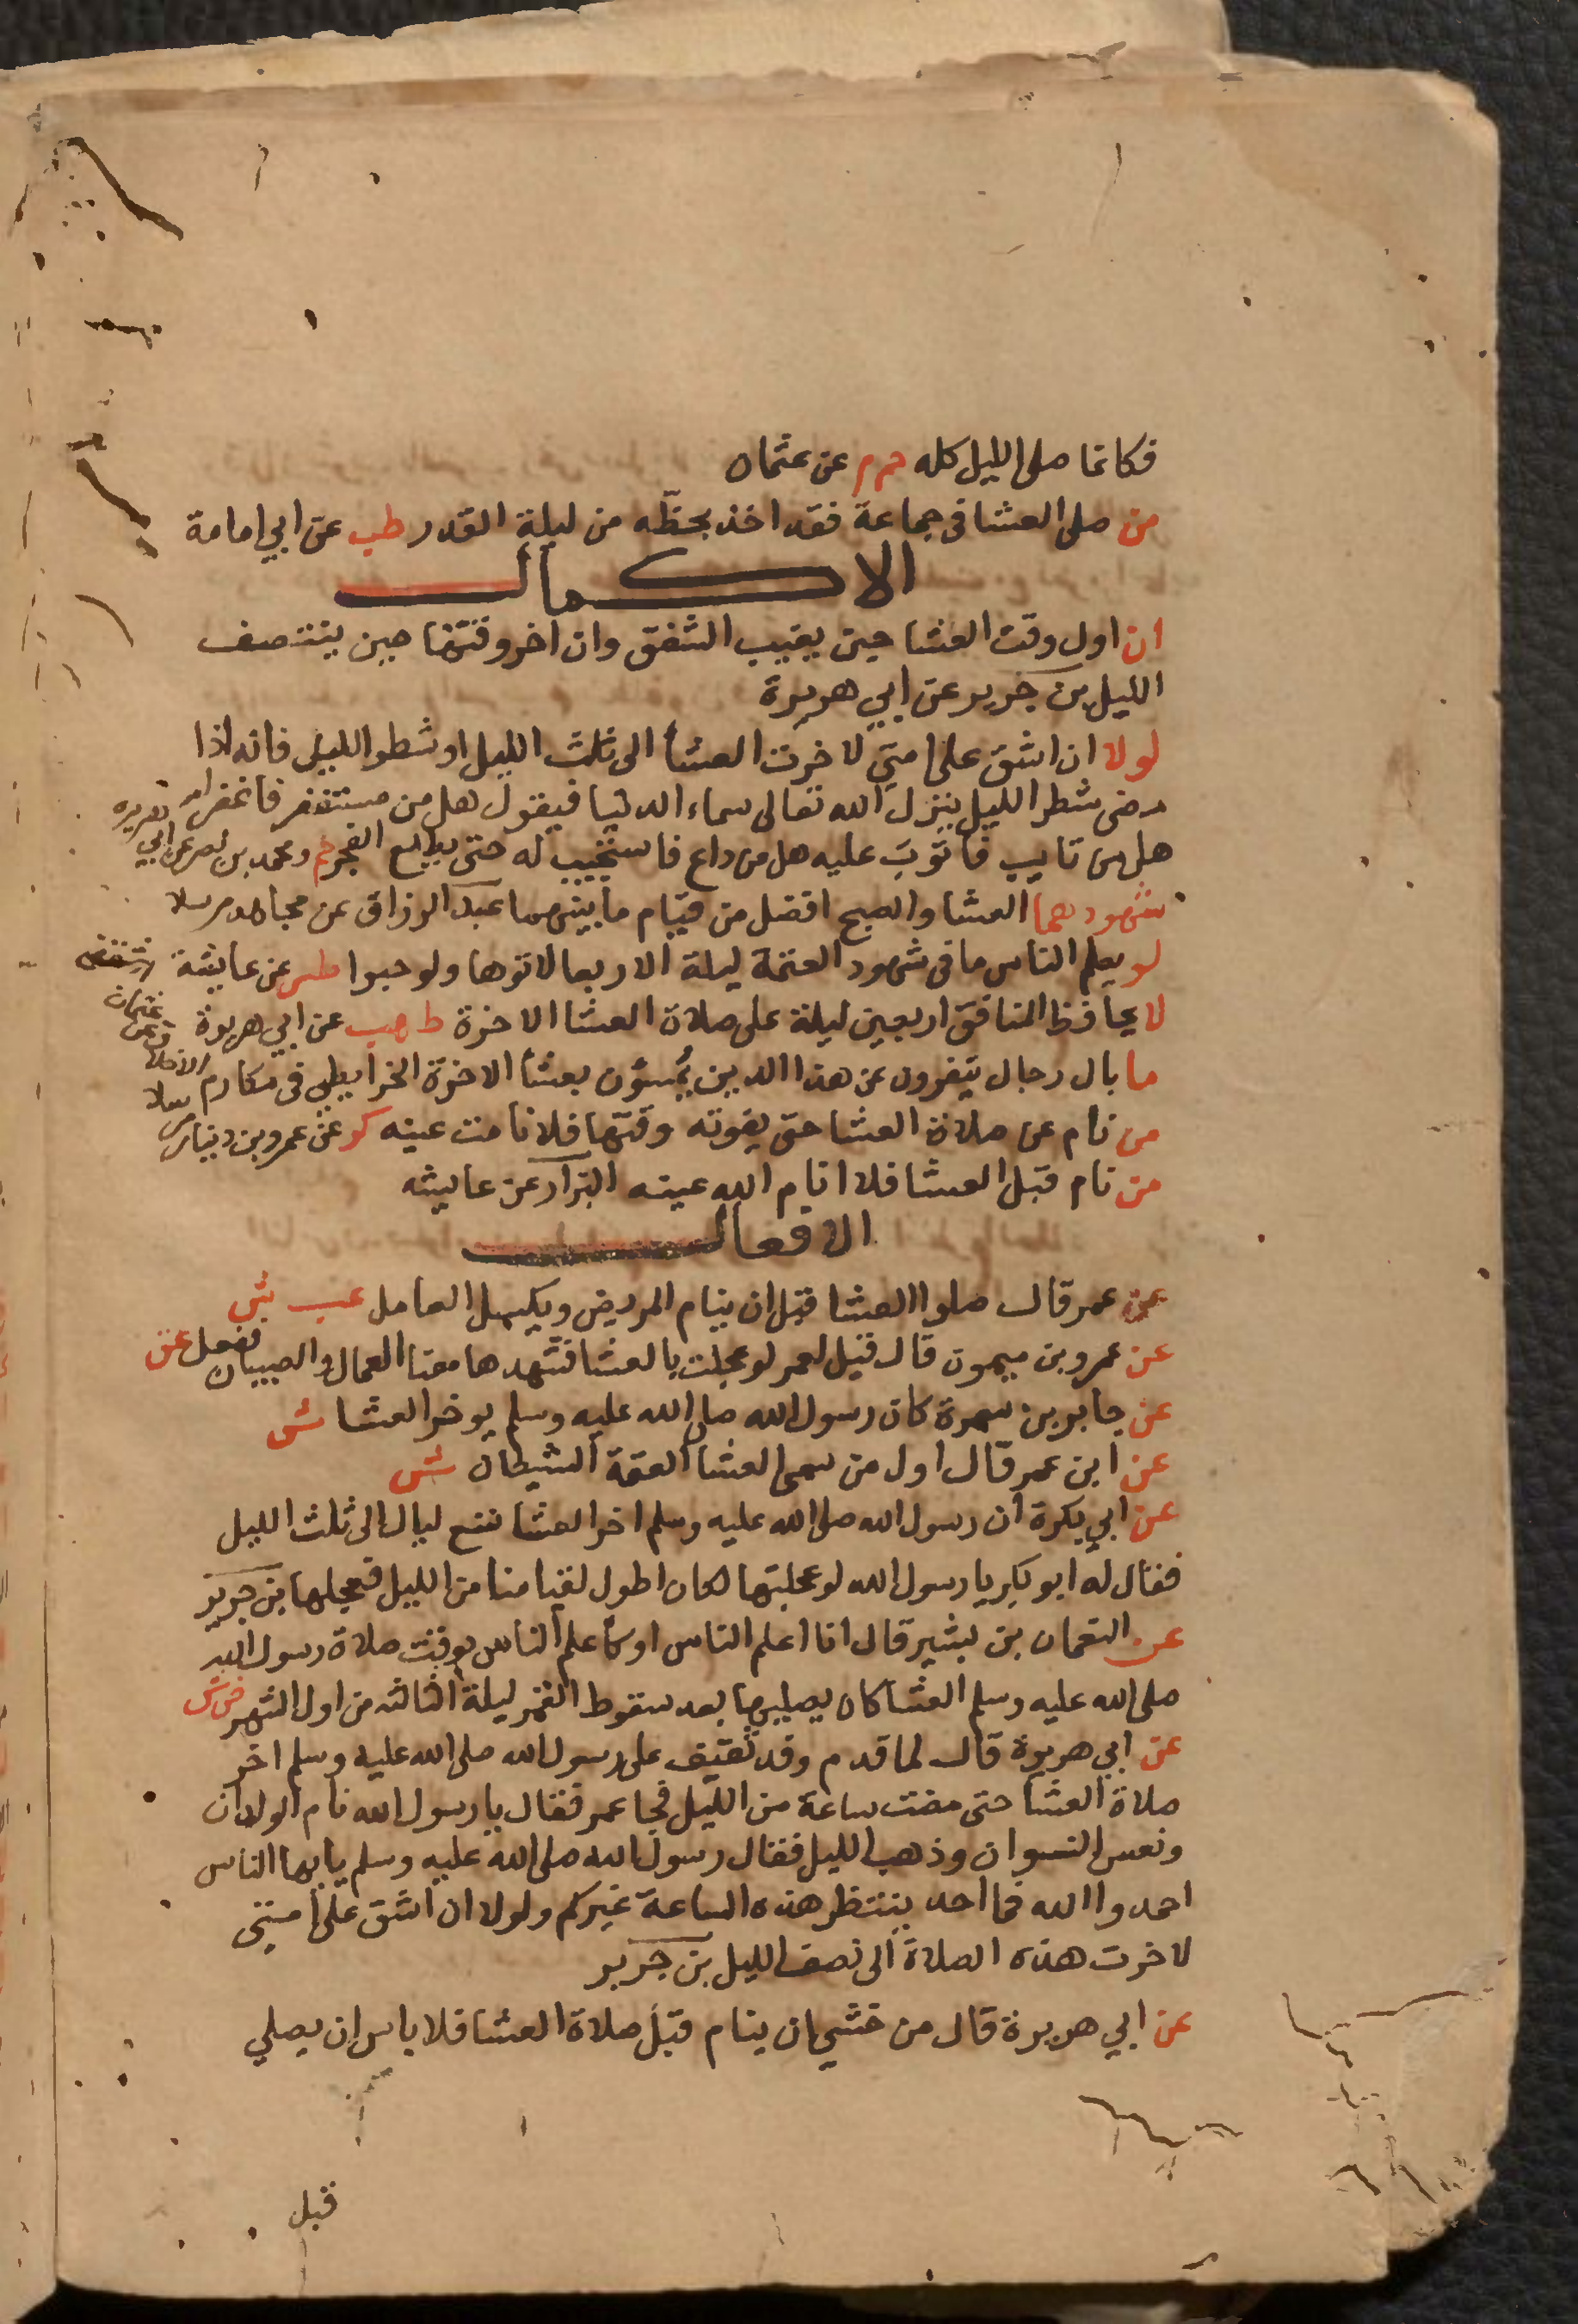 فكانما صلى الليل كله حم م عن عثمان
من صلى العشا فى جماعة فقد اخذ بحظّه من ليلة القدر طب عن ابي امامة
الاكمال
ان اول وقت العشا حين يغيب الشفق وان اخر وقتها حين ينتصف
الليل بن جرير عن ابي هريرة
لولا ان اشق على امتي لاخرت العشا الى ثلث الليل او شطر الليل فانه اذا
مضى شطر الليل ينزل الله تعالى سماء الدنيا فيقول هل من مستغفر فاغفر له
هل من تايب فاتوب عليه هل من داع فاستجيب له حتى يطلع الفجر حم ومحمد بن نصر عن ابي هريره
شهودهما العشا والصبح افضل من قيام ما بينهما عبد الرزاق عن مجاهد مرسلا
لو يعلم الناس ما فى شهود العتمة ليلة الاربعا لاتوها ولو حبوا طس عن عايشة
لا يحافظ المنافق اربعين ليلة على صلاة العشا الاخرة ط هب عن ابي هريرة
ما بال رجال ينفرون عن هذا الدين يمسون بعشا الاخرة الخرايطي فى مكارم الاخلاق عن عثمان
من نام عن صلاة العشا حتى يفوته وقتها فلا نامت عينه كر عن عمرو بن دينار مرسلا
من نام قبل العشا فلا انام الله عينه البزار عن عايشه
الافعال
عن عمر قال صلوا العشا قبل ان ينام المريض ويكسل العامل عب ش
عن عمرو بن ميمون قال قيل لعمر لو عجلت بالعشا فتشهدها معنا العمال والصبيان ففعل
عن جابر بن سمرة كان رسول الله صلى الله عليه وسلم يوخر العشا ش
عن ابن عمر قال اول من سمى العشا العتمة الشيطان ش
عن ابي بكرة ان رسول الله صلى الله عليه وسلم اخر العشا تسع ليال الى ثلث الليل
فقال له ابو بكر يا رسول الله لو عجلتها لكان اطول لقيامنا من الليل فعجلها بن جرير
عن النعمان بن بشير قال انا اعلم الناس او كاعلم الناس بوقت صلاة رسول الله
صلى الله عليه وسلم العشا كان يصليها بعد سقوط القمر ليلة الثالثه من اول الشهر ض ش
عن ابي هريرة قال لما قدم وفد ثقيف على رسول الله صلى الله عليه وسلم اخر
صلاة العشا حتى مضت ساعة من الليل فجا عمر فقال يا رسول الله نام الولدان
ونعس النسوان وذهب الليل فقال رسول الله صلى الله عليه وسلم يايها الناس
احمدوا الله فما احد ينتظر هذه الساعة غيركم ولولا ان اشق على امتي
لاخرت هذه الصلاة الى نصف الليل بن جرير
عن ابي هريرة قال من خشي ان ينام قبل صلاة العشا فلا باس ان يصلي
قبل